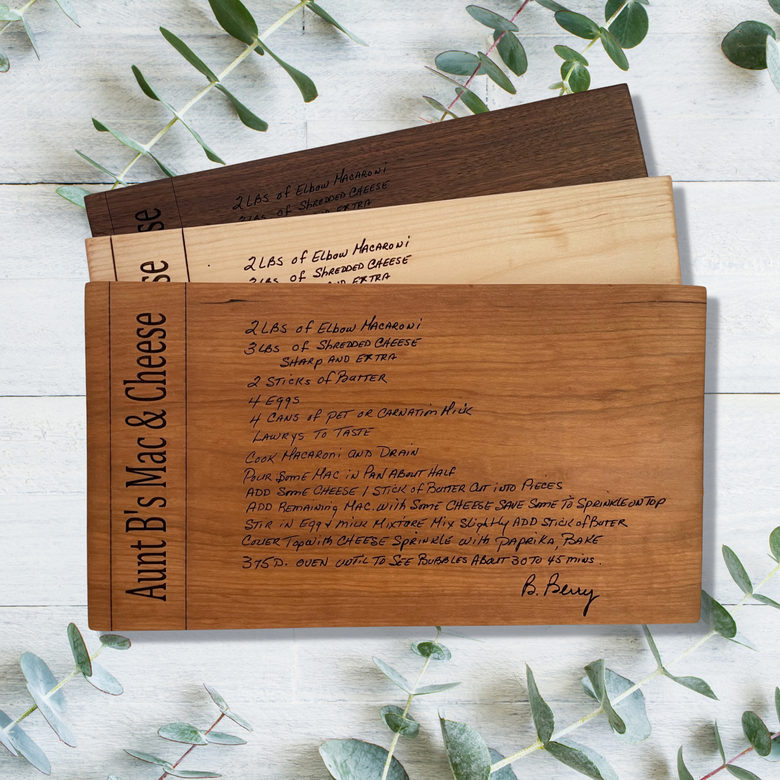 2 LBS of Elbow MACARONI
2 LBS of SHREDDED CHEESE
SHARP AND EXTRA
se
2 LBS of Elbow MACARONI
3 LBS of SHREDDED CHEESE
se
Aunt B's Mac & Cheese
2 LBS of Elbow MACARONI
3 LBS of SHREDDED CHEESE
SHARP AND EXTRA
2 STICKS of BUTTER
4 EGGS
4 CANS of PET OR CARNATION MILK
LAWRYS TO TASTE
COOK MACARONI AND DRAIN
POUR SOME MAC IN PAN ABOUT HALF
ADD SOME CHEESE 1 STICK of BUTTER CUT INTO PIECES
ADD REMAINING MAC. with SOME CHEESE SAVE SOME TO SPRINKLE ON TOP
STIR IN EGG & MILK MIXTURE MIX SLIGHTLY ADD STICK of BUTER
COVER TOP with CHEESE SPRINKLE with PAPRIKA, BAKE
375 D. OVEN UNTIL TO SEE BUBBLES ABOUT 30 TO 45 MINS.
B. Berry